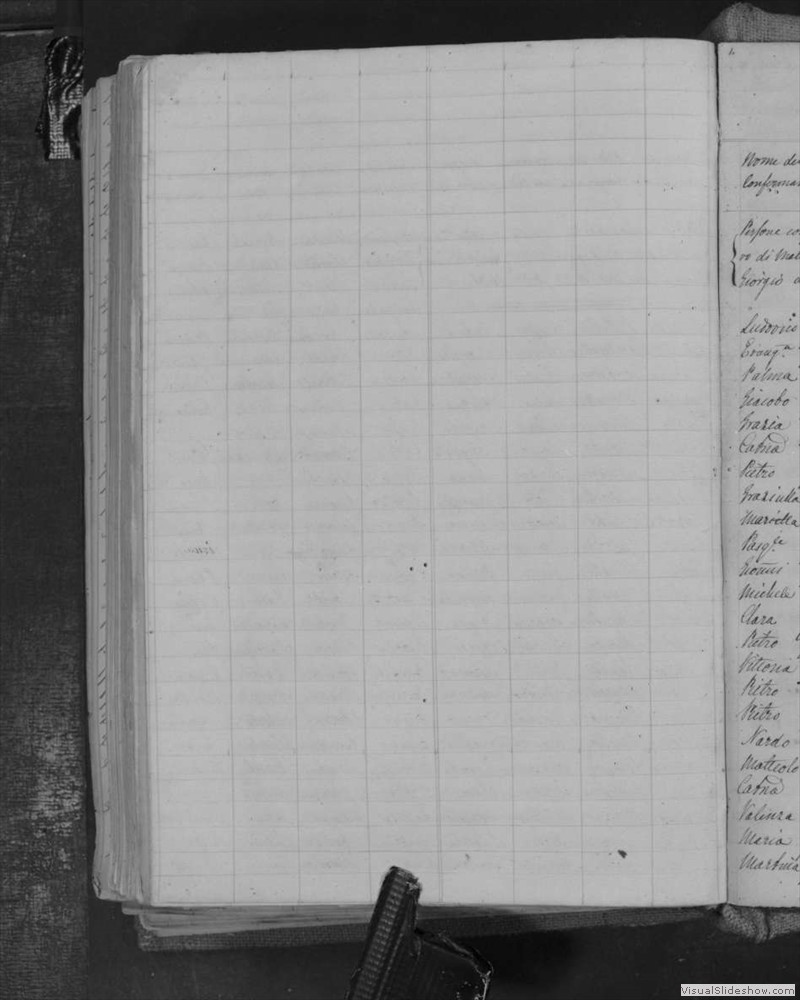 Nome de
Confirma
Persone co
ro di Mat
Giorgio
Ludovico
Evang.a
Palma
Giacobo
Grazia
Catna
Pietro
Graziulla
Mariella
Pasq.le
Michele
Clara
Pietro
Vittoria
Pietro
Pietro
Nardo
Matteolo
Catna
Valenza
Maria
VisualSlideshow.com